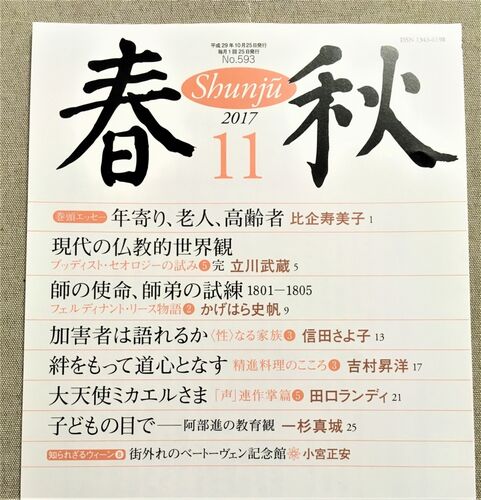 平成29年10月25日発行
毎月1回25日発行
No.593
ISSN 1343-6198
春秋
Shunjū
2017
11
巻頭エッセー 年寄り、老人、高齢者 比企寿美子 1
現代の仏教的世界観
ブッディスト・セオロジーの試み 5 完 立川武蔵 5
師の使命、師弟の試練 1801−1805
フェルディナント・リース物語 2 かげはら史帆 9
加害者は語れるか 〈性〉なる家族 3 信田さよ子 13
絆をもって道心となす 精進料理のこころ 3 吉村昇洋 17
大天使ミカエルさま 「声」連作掌篇 5 田口ランディ 21
子どもの目で──阿部進の教育観 一杉真城 25
知られざるウィーン 8 街外れのベートーヴェン記念館 小宮正安